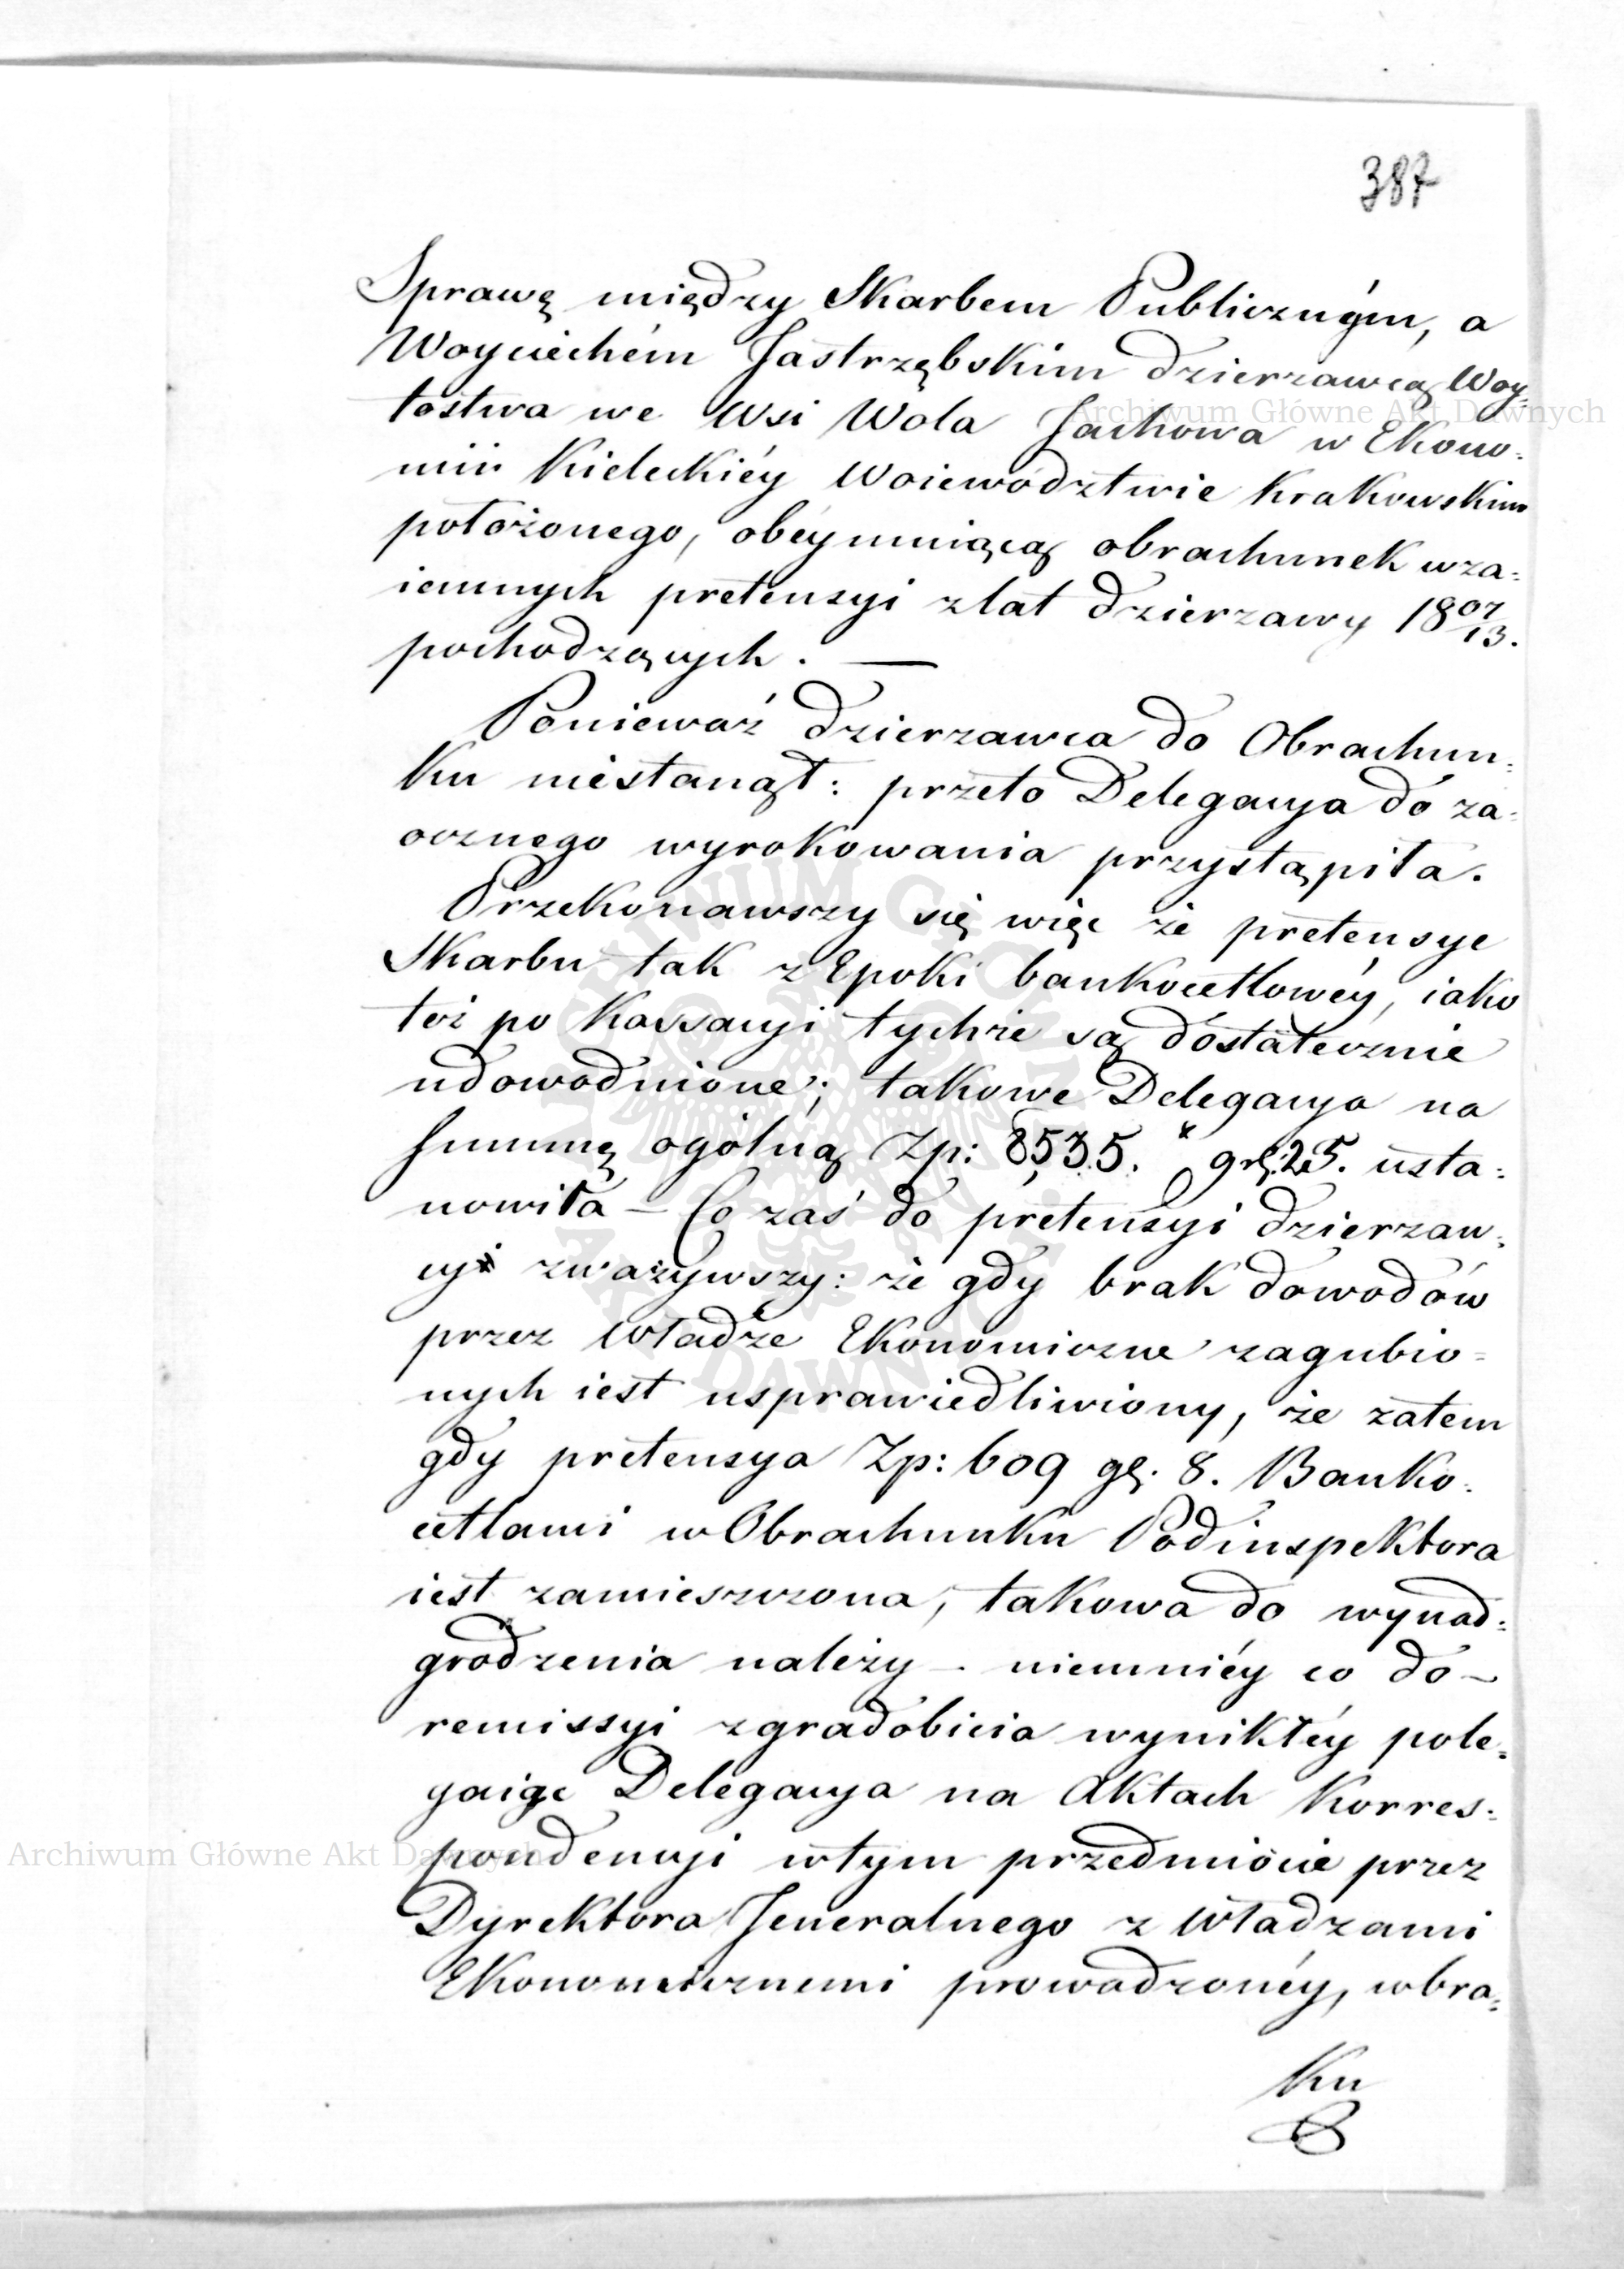 387
Sprawę między Skarbem Publicznym, a
Woyciechém Jastrzębskim dzierzawcą Woy-
tostwa we Wsi Wola Jachowa w Ekono-
mii Kieleckiéy Woiewództwie Krakowskim
położonego, obéymuiącą obrachunek wza-
iemnych pretensyi z lat dzierzawy 1807/13.
pochodzących. —
Ponieważ dzierzawca do Obrachun-
ku niestanął: przeto Delegacya do za-
ocznego wyrokowania przystąpiła.
Przekonawszy się więc że pretensye
Skarbu tak z Epoki bankocetlowéy, iako
też po Kassacyi tychże są dostatecznie
udowodnione; takowe Delegacya na
Summę ogólną Zp: 8,535. gr. 25. usta-
nowiła — Co zaś do pretensyi dzierzaw-
cy zważywszy: że gdy brak dowodów
przez Władze Ekonomiczne zagubio-
nych iest usprawiedliwiony, że zatem
gdy pretensya Zp: 609 g. 8. Banko-
cetlami w Obrachunku Podinspektora
iest zamieszczona, takowa do wynad-
grodzenia należy — niemniéy co do —
remissyi z gradobicia wynikłéy pole-
gaiąc Delegacya na Aktach Korres-
pondencyi w tym przedmiocie przez
Dyrektora Jeneralnego z Władzami
Ekonomicznemi prowadzonéy, w bra-
ku
Archiwum Główne Akt Dawnych
Archiwum Główne Akt Dawnych
ARCHIWUM GŁÓWNE AKT DAWNYCH